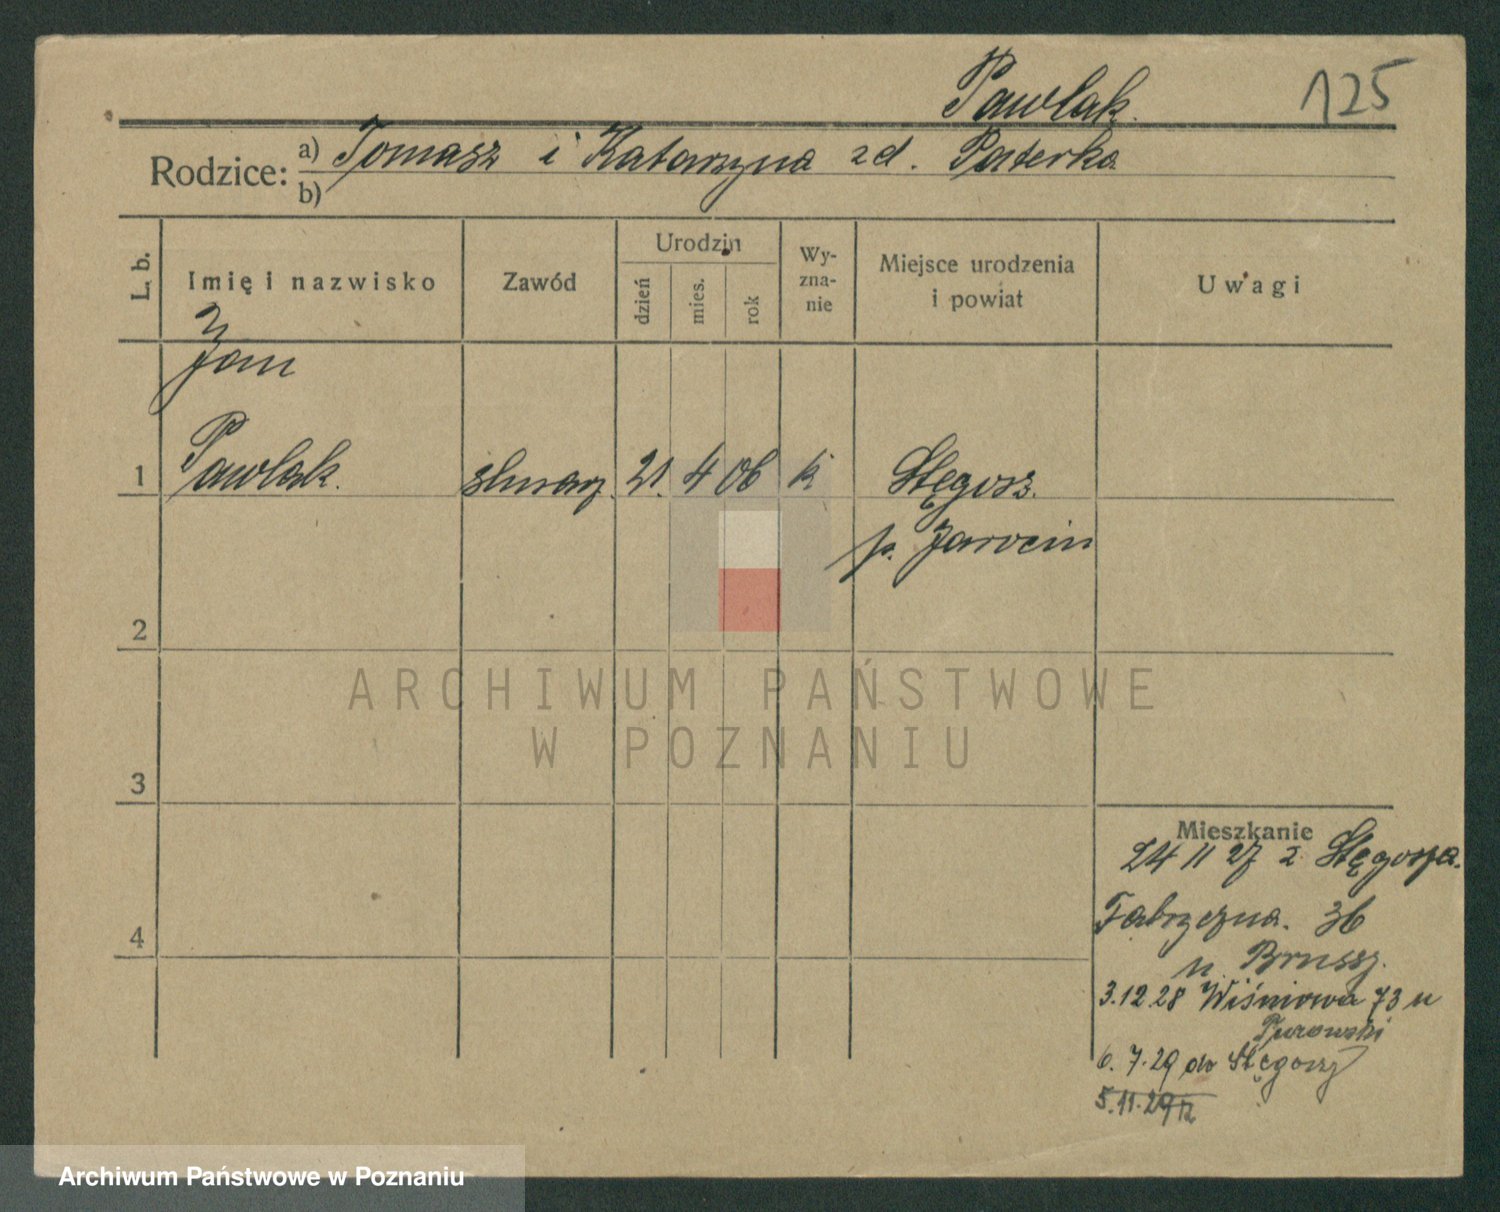 Pawlak.
125
Rodzice:
a) Tomasz i Katarzyna zd. Paterka
b)
L. b.
Imię i nazwisko
Zawód
Urodzin
dzień
mies.
rok
Wy-
zna-
nie
Miejsce urodzenia
i powiat
Uwagi
Jan
1 Pawlak. 21. 4 06 k Stęgosz.
p. Jarocin
2
ARCHIWUM PAŃSTWOWE
W POZNANIU
3
Mieszkanie
24 11 27 z Stęgosza.
4
Fabryczna. 36
u.
3.12.28 Wiśniowa 73 u
6. 7.29 do Stęgoszy
5.11.29
Archiwum Państwowe w Poznaniu